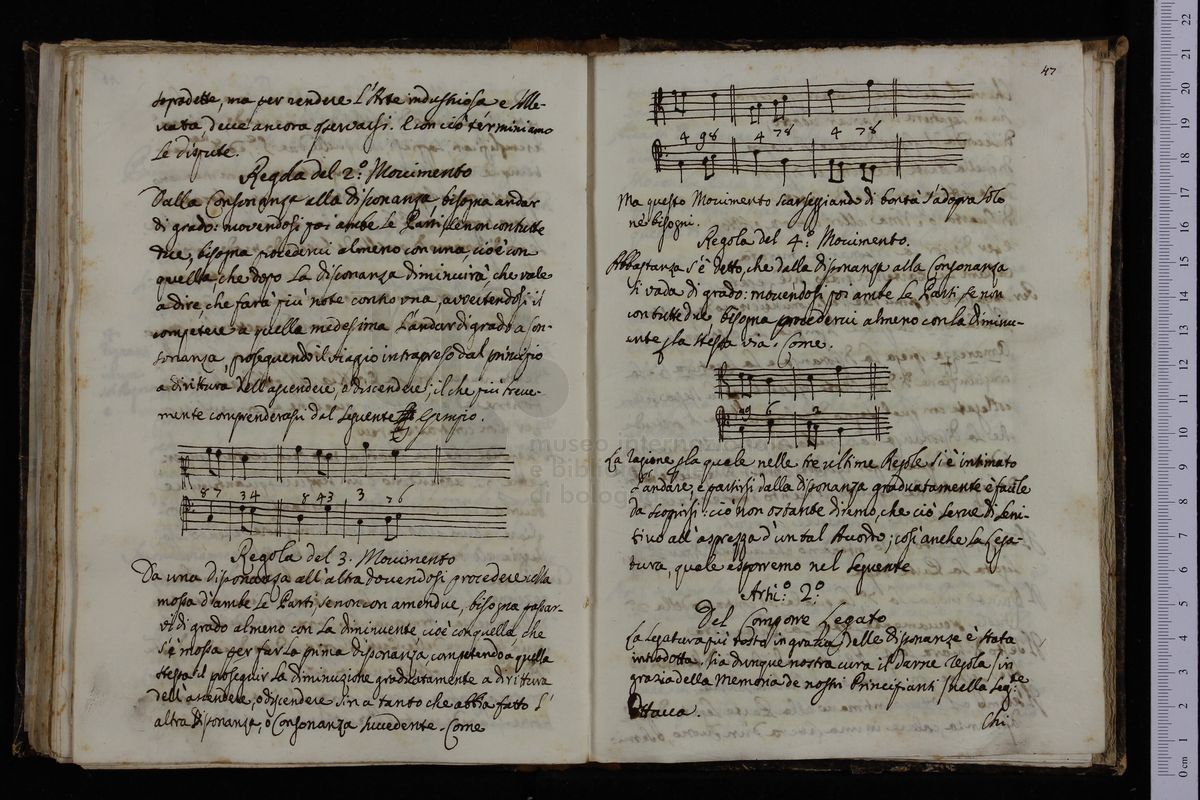 sopradette, ma per rendere l'Arte industriosa e ille-
vata, deve ancora osservarsi. E con ciò terminiamo
le dispute.
Regola del 2.º Movimento
Dalla Consonanza alla disonanza bisogna andar
di grado: movendosi poi ambe le Parti se non con tutte
due, bisogna procedervi almeno con una, cioè con
quella, che dopo la disonanza diminuirà, che vale
a dire, che farà più note contro una, avvertendosi il
competere a quella medesima l'andar di grado a Con-
sonanza, proseguendo il viagio intrapreso dal principio
a diritura dell'ascendere, o discendere; il che più breve-
mente comprenderassi dal seguente Esempio.
8 7 3 4 8 4 3 3 7 6
Regola del 3. Movimento
Da una disonanza all'altra dovendosi procedere colla
mossa d'ambe le Parti se non con amendue, bisogna passar-
vi di grado almeno con la diminuente cioè con quella che
s'è mossa per far la prima disonanza, competendo a quella
stessa il proseguir la diminuzione graduatamente a diritura
dell'ascendere, o discendere sin a tanto che abbia fatto l'
altra disonanza, o Consonanza succedente. Come
47
4 9 8 4 7 8 4 7 8
Ma questo Movimento scarseggiando di bontà s'adopra solo
ne' bisogni.
Regola del 4.º Movimento.
Abbastanza s'è detto, che dalla disonanza alla Consonanza
si vada di grado: movendosi poi ambe le Parti se non
con tutte due bisogna procedervi almeno con la diminu-
ente p la stessa via. Come.
6 2
La ragione p la quale nelle tre ultime Regole si è intimato
l'andare, e partirsi dalla disonanza graduatamente è facile
da scoprirsi: ciò non ostante diremo, che ciò serve di leni-
tivo all'asprezza d'un tal Acordo; così anche la Lega-
tura, quale esporremo nel seguente
Arti:º 2.º
Del Comporre Legato
La Legatura più tosto in grazia delle disonanze è stata
introdotta. sia dunque nostra cura il darne regola in
grazia della Memoria de nostri Principianti nella seg.te
Ottava.
Chi
museo internazionale
e biblioteca
di bologna
0 cm 1 2 3 4 5 6 7 8 9 10 11 12 13 14 15 16 17 18 19 20 21 22